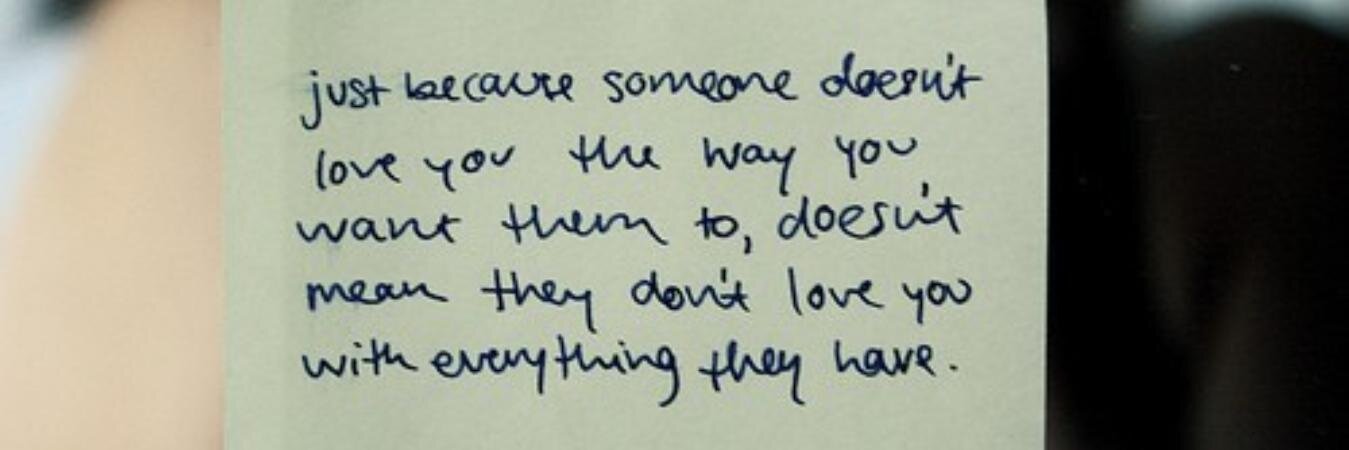 just because someone doesn't
love you the way you
want them to, doesn't
mean they don't love you
with everything they have.